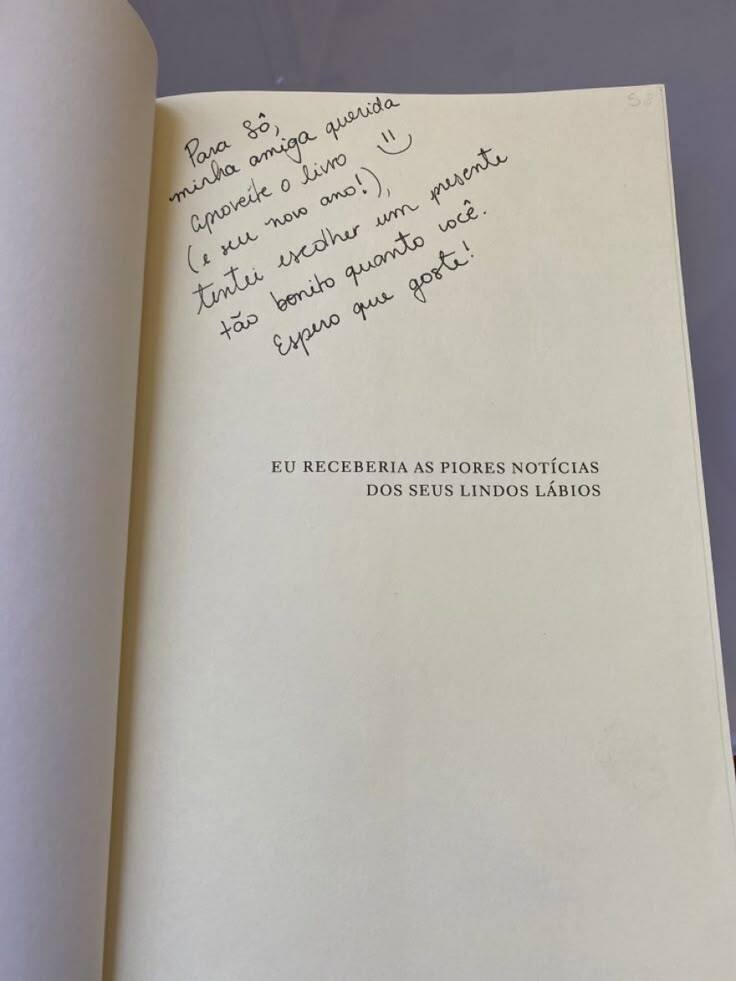 Para Sô,
minha amiga querida
aproveite o livro
(e seu novo ano!),
tentei escolher um presente
tão bonito quanto você.
Espero que goste!
EU RECEBERIA AS PIORES NOTÍCIAS
DOS SEUS LINDOS LÁBIOS